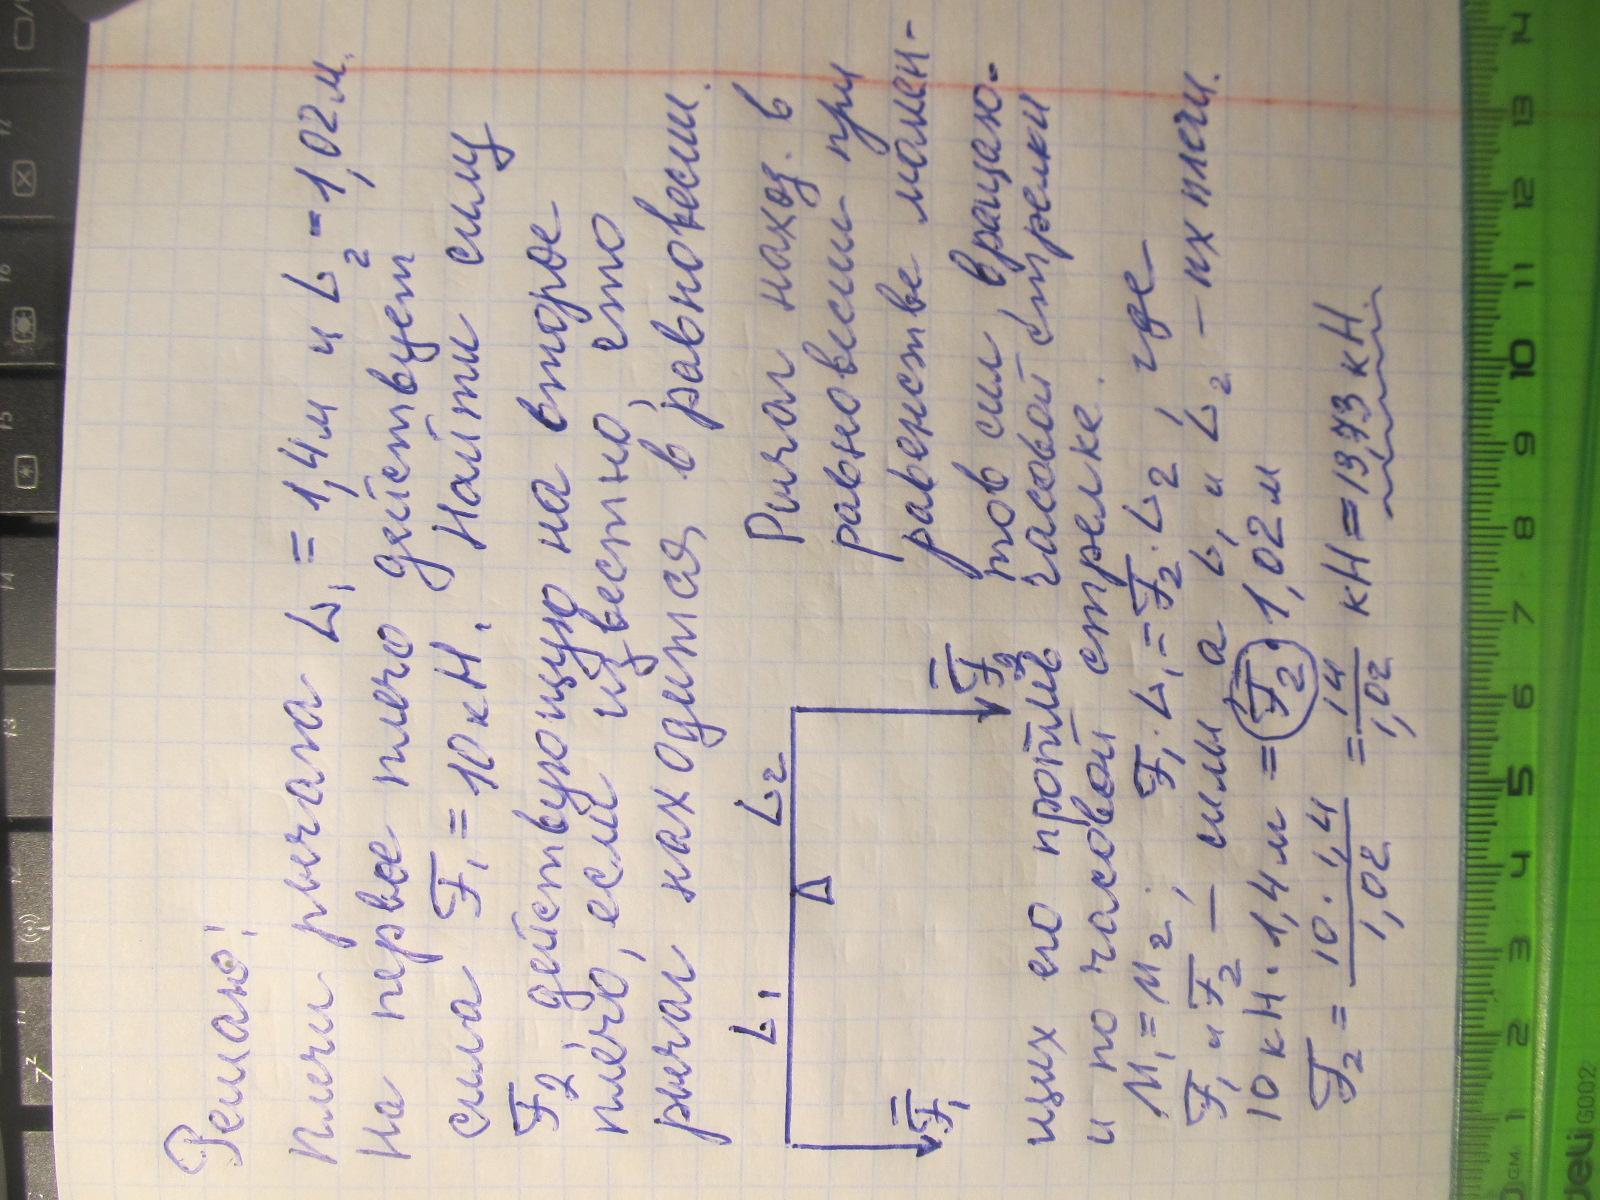 Решаю!
Плечи рычага L₁ = 1,4м и L₂ = 1,02м.
На первое плечо действует
сила F₁ = 10 кН. Найти силу
F₂, действующую на второе
плечо, если известно, что
рычаг находится в равновесии.
L₁ L₂
F₁ F₂
Рычаг наход. в
равновесии при
равенстве момен-
тов сил, вращаю-
щих его против часовой стрелки
и по часовой стрелке.
M₁ = M₂. F₁ · L₁ = F₂ · L₂, где
F₁ и F₂ – силы а L₁ и L₂ – их плечи.
10 кН · 1,4 м = F₂ · 1,02 м
F₂ = 10 · 1,4 / 1,02 = 14 / 1,02 кН = 13,73 кН
1 2 3 4 5 6 7 8 9 10 11 12 13 14
CM
deli G002